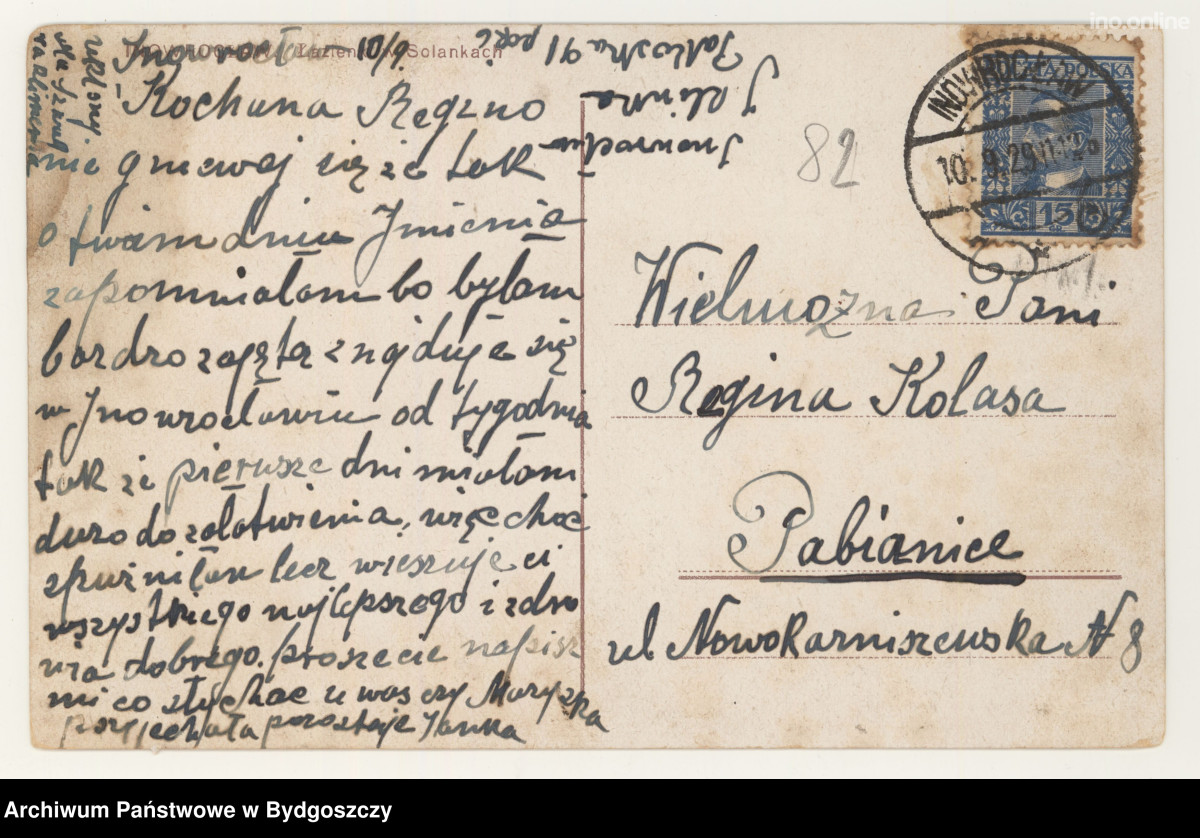 ino.online
INOWROCŁAW Łazienki w Solankach
Inowrocław 10/9
Kochana Regzno
nie gniewaj się że tak
o twám dniu Jmienia
zapomniałam bo byłam
bardzo zajęta znajduje się
w Jnowrocławiu od tygodnia
tak że pierwsze dni miałam
durzo do załatwienia, więc choć
spuźniłam lecz wieszuje ci
wszystkiego najlepszego i zdro
wia dobrego. proszecie napisz
mi co słychac u was czy Maryszka
przyjechała pozostaje Janka
ukłony
dla
Inowrocław
Jalinka
91
82
POCZTA POLSKA
15
INOWROCŁAW
10. 9. 29
Wielmożna Pani
Regina Kolasa
Pabianice
ul Nowokarniszewska N 8
Archiwum Państwowe w Bydgoszczy